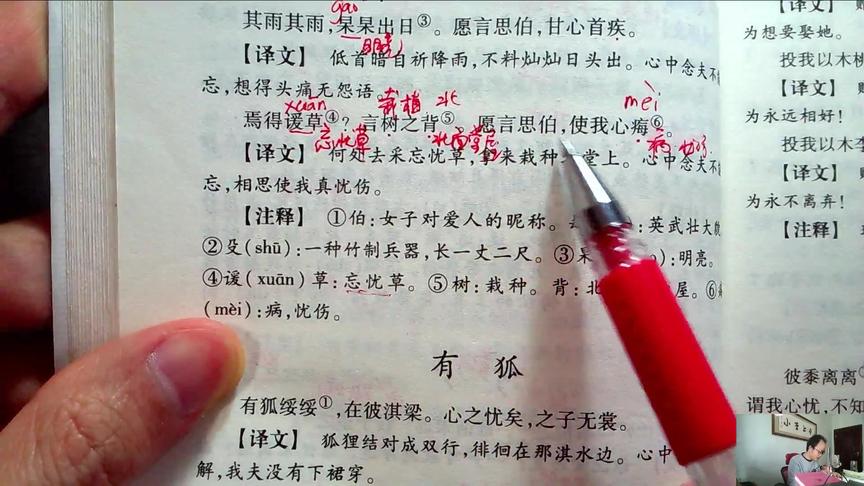 其雨其雨,杲杲出日③。愿言思伯,甘心首疾。
【译文】 低首暗自祈降雨,不料灿灿日头出。心中念夫不
忘,想得头痛无怨语。
xuān 栽植 北 mèi
焉得谖草④?言树之背⑤。愿言思伯,使我心痗⑥。
忘忧草 病
【译文】 何处去采忘忧草,拿来栽种 堂上。心中念夫不
忘,相思使我真忧伤。
【注释】 ①伯:女子对爱人的昵称。 :英武壮大
②殳(shū):一种竹制兵器,长一丈二尺。③杲 ):明亮。
④谖(xuān)草:忘忧草。⑤树:栽种。背:北 屋。⑥
(mèi):病,忧伤。
有狐
有狐绥绥①,在彼淇梁。心之忧矣,之子无裳。
【译文】 狐狸结对成双行,徘徊在那淇水边。心中
解,我夫没有下裙穿。
【译文】
为想要娶她。
投我以木桃
【译文】
为永远相好!
投我以木李
【译文】
为永不离弃!
【注释】
彼黍离离
谓我心忧,不知